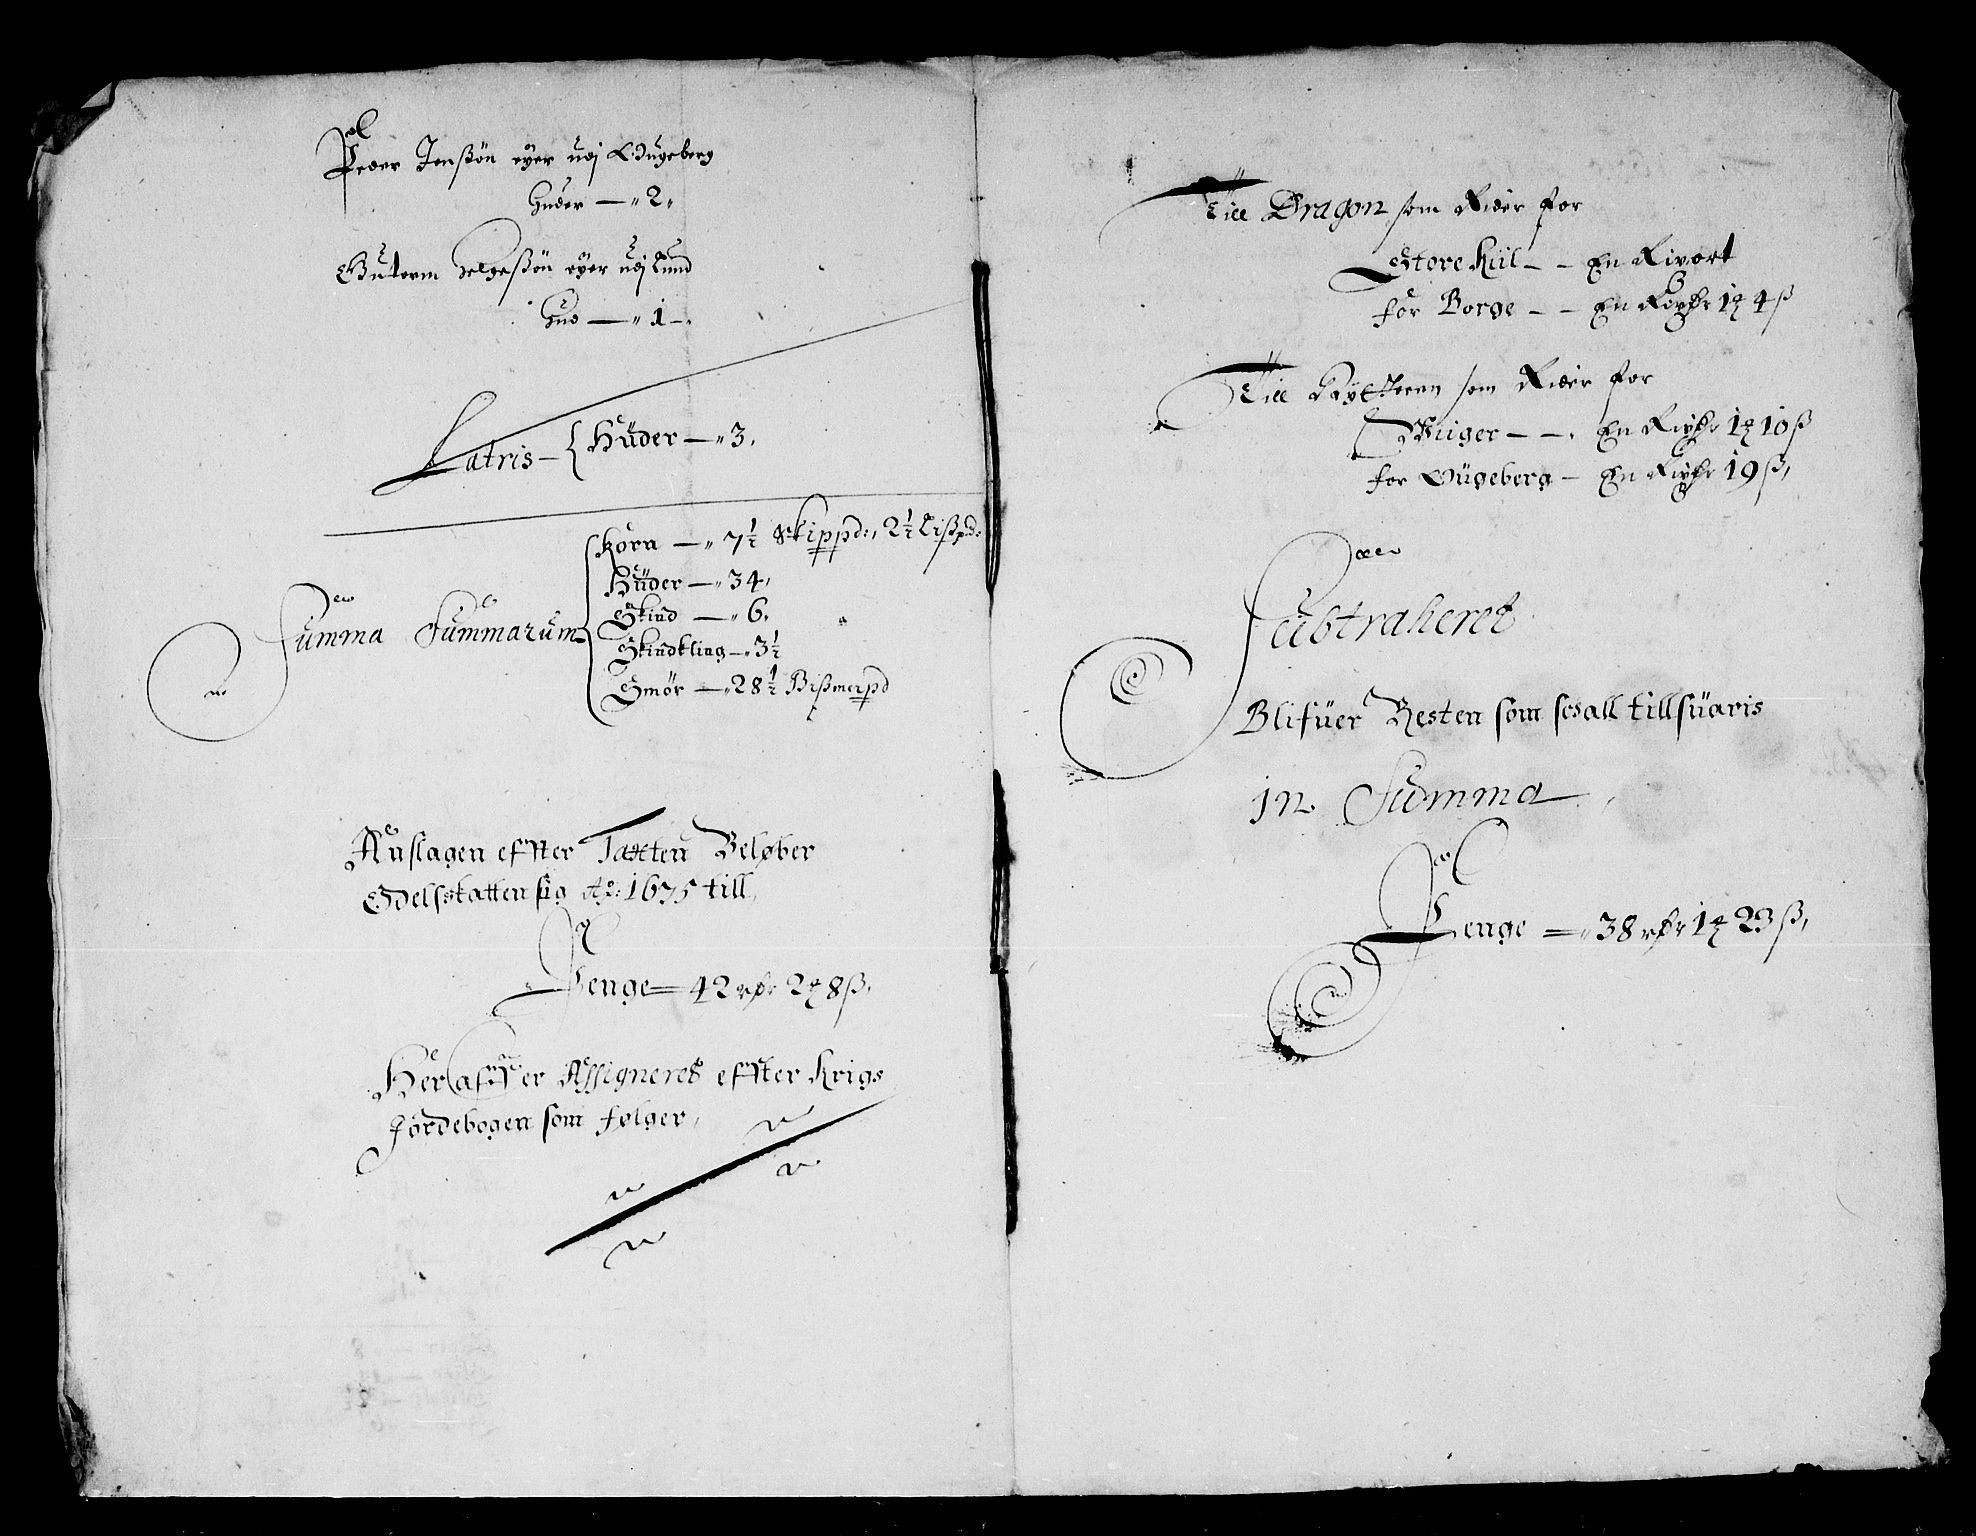 Peder Jenßøn eyer udj Ougeberg
Huder — „ 2 „
Guttorm Helgeßøn eyer udj Lund
Hud — „ 1 —
Latris — { Hüder — „ 3 „
Summa Summarum
Korn — „ 7½ Skippd:, 2½ Lißpd:
Hüder — „ 34 „
Skind — „ 6 „
Skindkling — „ 3½
Smør — „ 28½ Bißmerpd
Anslagen effter Taxten Beløber
Odelsskatten sig Ao: 1675 till,
Penge = 42 rdr 2 ₰ 8 ß,
Her affuer Assigneret effter Krigs
Jordebogen som følger,
Till Dragon som Rider for
Store Kiil — — En Rixort
for Borge — — En Rixdr 1 ₰ 4 ß
Till Rytteren som Rider for
Wiiger — — En Rixdr 1 ₰ 10 ß
for Ougeberg — En Rixdr 19 ß,
Subtraheret
Blifuer Resten som schall tillsuaris
in Summa
Penge = „ 38 rdr 1 ₰ 23 ß,